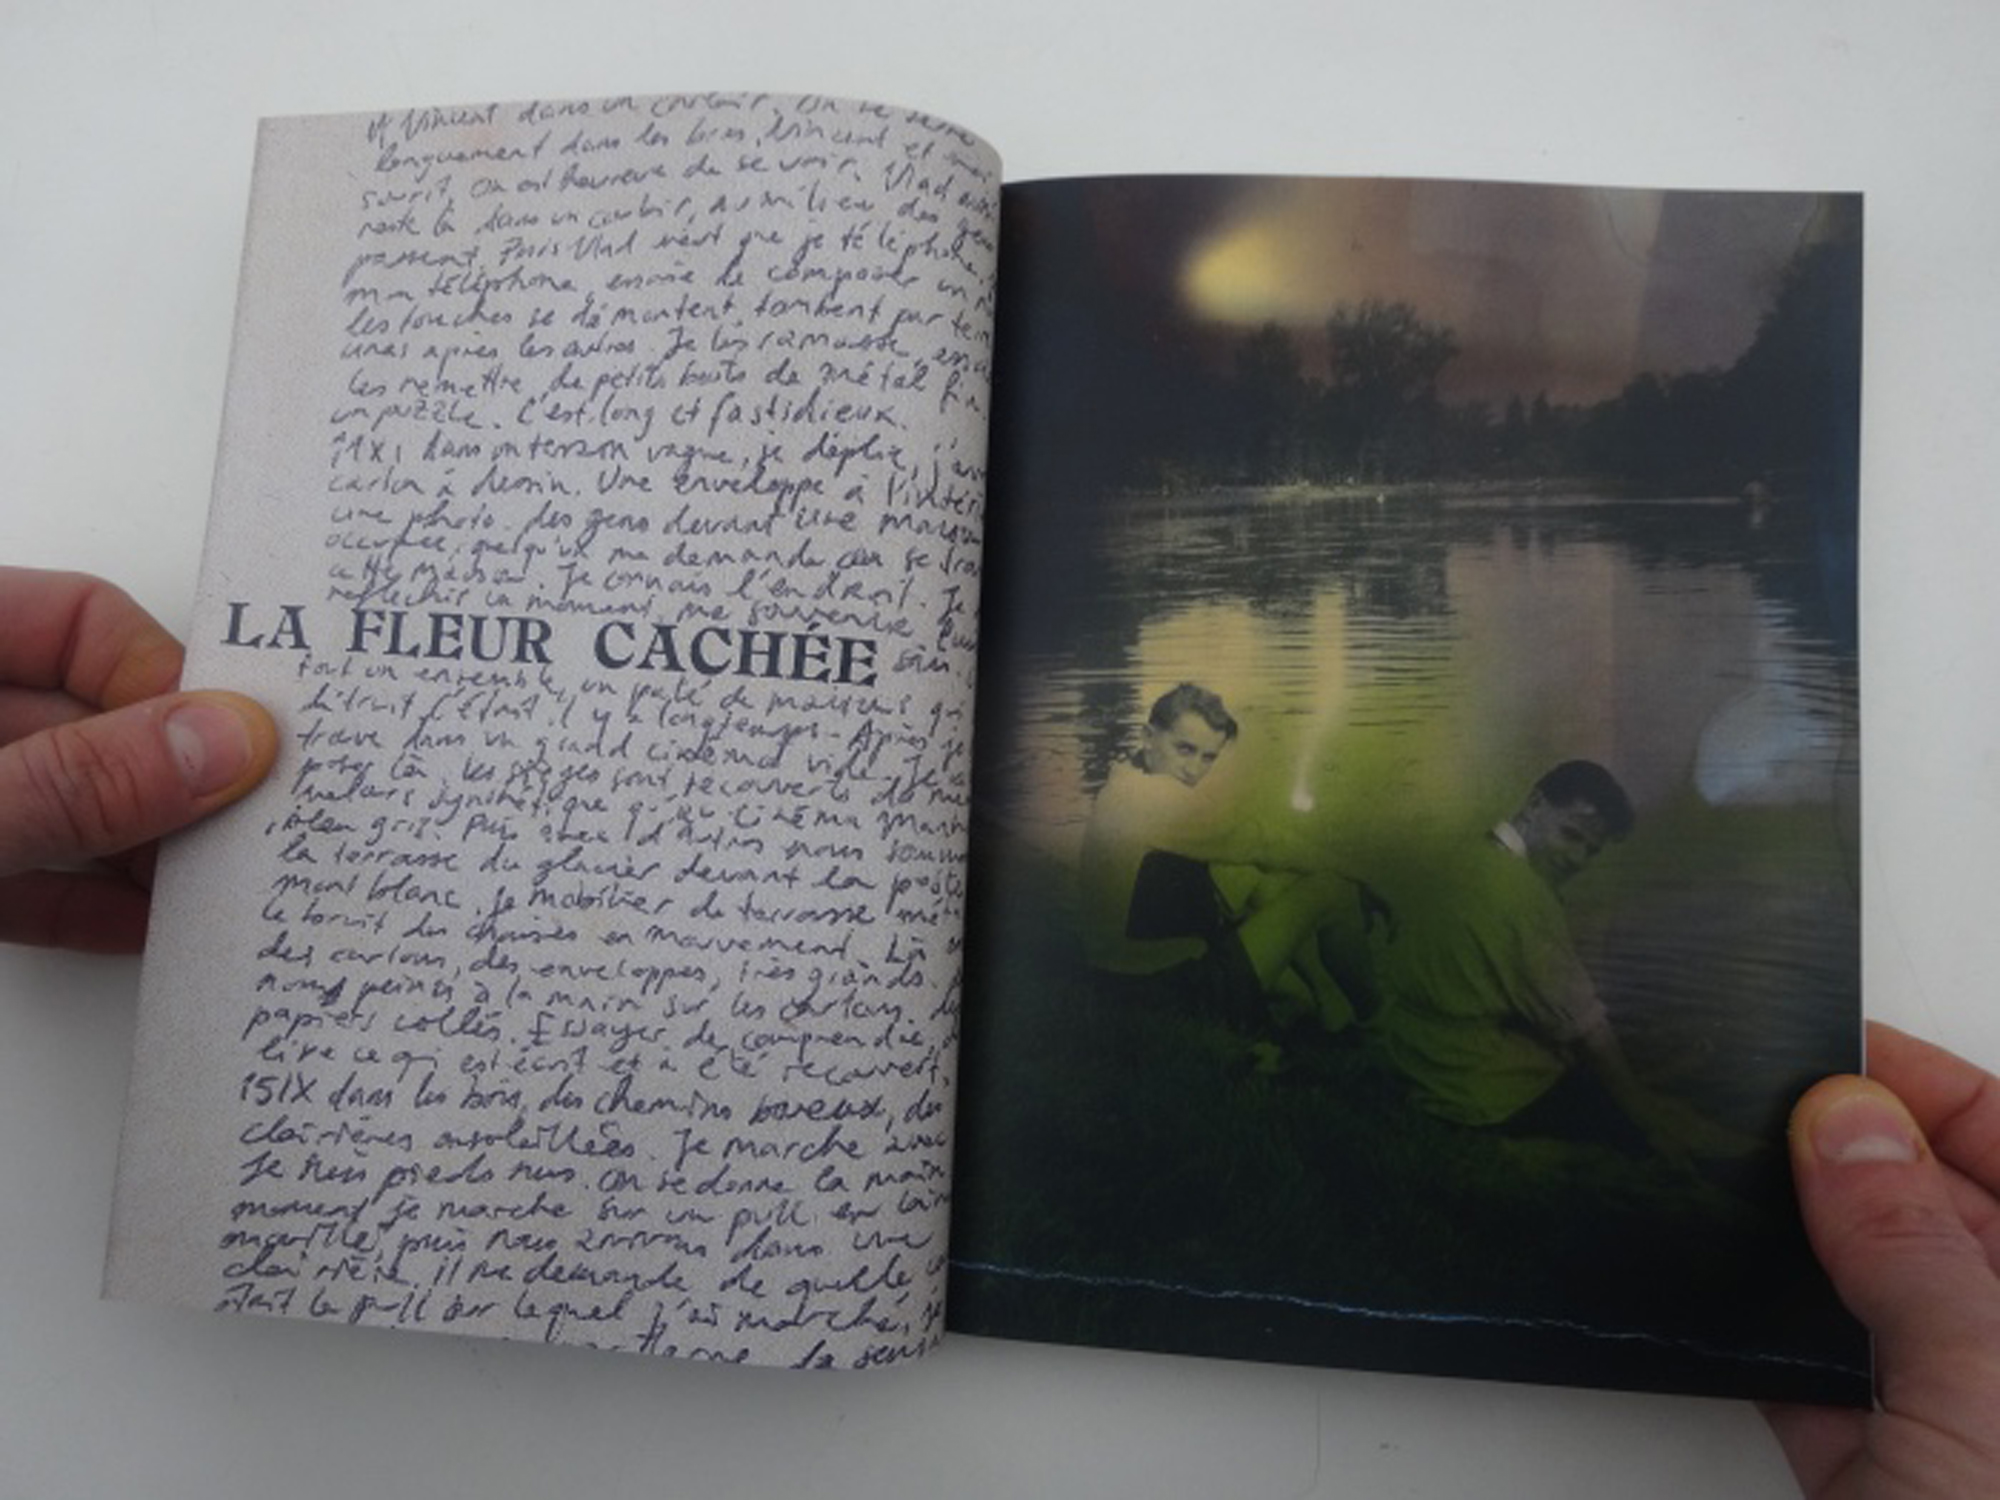 Vincent dans un couloir. On se serre
longuement dans les bras, Vincent et moi
sourit. On est heureux de se voir. Vlad
reste là dans un couloir, au milieu des gens
passent. Puis Vlad veut que je téléphone,
mon téléphone, essaie de composer un
les touches se démontent, tombent par
unes après les autres. Je les ramasse,
les remettre, de petits bouts de métal fin
un puzzle. C'est long et fastidieux.
11XI dans un terrain vague, je déplie, j'
carton à dessin. Une enveloppe à l'intéri
une photo. des gens devant une maison
occupée, quelqu'un me demande où se
cette maison. Je connais l'endroit. Je
réfléchis un moment, me souvenir.
LA FLEUR CACHÉE
tout un ensemble, un pâté de maisons qui
détruit. C'était il y a longtemps. Après je
trouve dans un grand cinéma vide. Je
poser là, les sièges sont recouverts de
velours synthétique qu'au cinéma
bleu gris. Puis avec d'autres nous sommes
la terrasse du glacier devant la poste
mont blanc. Le mobilier de terrasse
le bruit des chaises en mouvement. Là
des cartons, des enveloppes, très grands.
noms peints à la main sur les cartons. des
papiers collés. Essayer de comprendre,
lire ce qui est écrit et a été recouvert,
15IX dans les bois, des chemins boueux, des
clairières ensoleillées. Je marche avec
Je suis pieds nus. On se donne la main
moment je marche sur un pull en lain
mouillé, puis nous arrivons dans une
clairière, il me demande de quelle
était le pull sur lequel j'ai marché, je